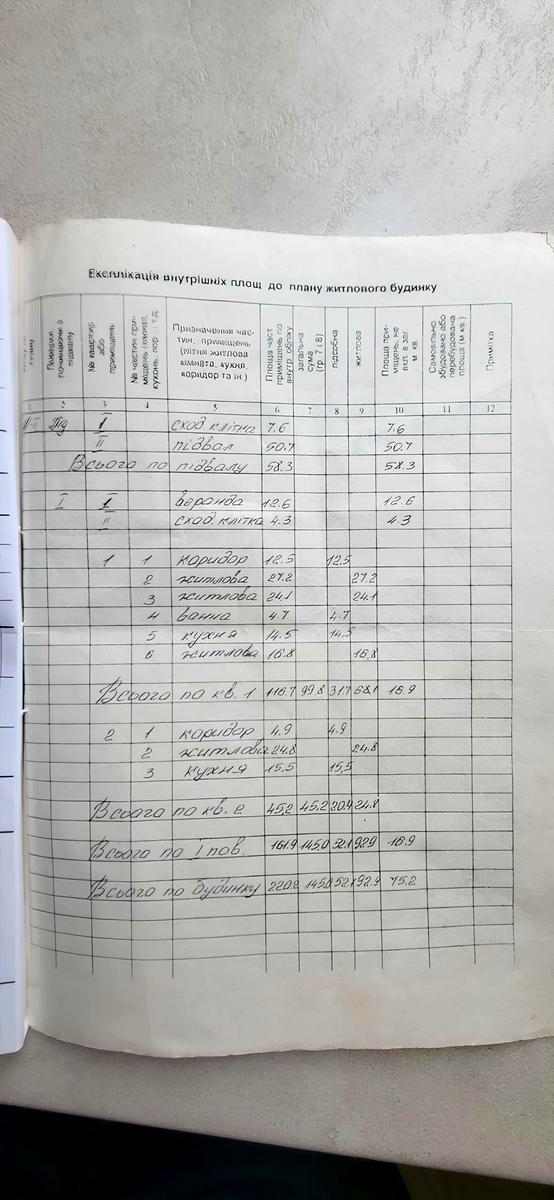 Експлікація внутрішніх площ до плану житлового будинку
плану
Поверхи, починаючи з підвалу
№ квартир або приміщень
№ частин приміщень (кімнат, кухонь, кор. і т.д.
Призначення частин, приміщень (літня житлова кімната, кухня, коридор та ін.)
Площа част. приміщень по внутр. обміру
загальна сума (гр. 7 і 8)
підсобна
житлова
Площа приміщень, не вкл. в заг. м. кв.
Самовільно збудовано або перебудована площа (м. кв.)
Примітка
2 3 4 5 6 7 8 9 10 11 12
Під I сход. клітка 7.6 7.6
II підвал 50.7 50.7
Всього по підвалу 58.3 58.3
I I веранда 12.6 12.6
II сход. клітка 4.3 4.3
1 1 коридор 12.5 12.5
2 житлова 27.2 27.2
3 житлова 24.1 24.1
4 ванна 4.7 4.7
5 кухня 14.5 14.5
6 житлова 16.8 16.8
Всього по кв. 1 116.7 99.8 31.7 68.1 16.9
2 1 коридор 4.9 4.9
2 житлова 24.8 24.8
3 кухня 15.5 15,5
Всього по кв. 2 45,2 45,2 20.4 24.8
Всього по I пов. 161.9 145.0 52.1 92.9 16.9
Всього по будинку 220.2 145.0 52.1 92.9 75.2